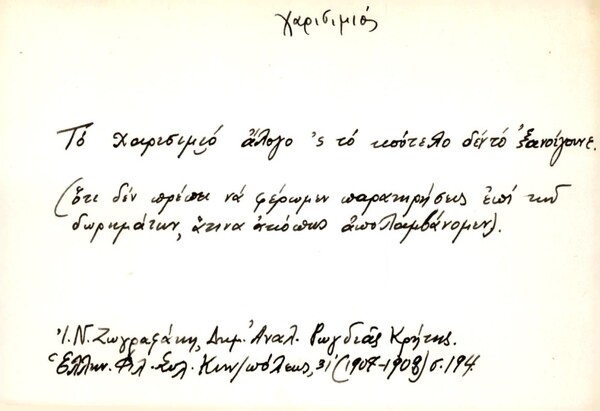 χαρισιμιός
Τό χαιρισιμιό ἄλογο 'ς τό ἀπότελο δέν τό ξανοίγουνε.
(ὅτι δέν πρέπει νά φέρωμεν παρατηρήσεις ἐπί τῶν
δωρημάτων, ἅτινα ἀκόπως ἀπολαμβάνομεν).
Ἰ. Ν. Ζωγραφάκη, Δημ. Ἀναλ. Ρωγδιᾶς Κρήτης.
Ἑλλην. Φιλ. Συλ. Κων/πόλεως, (1907-1908) σ. 194.